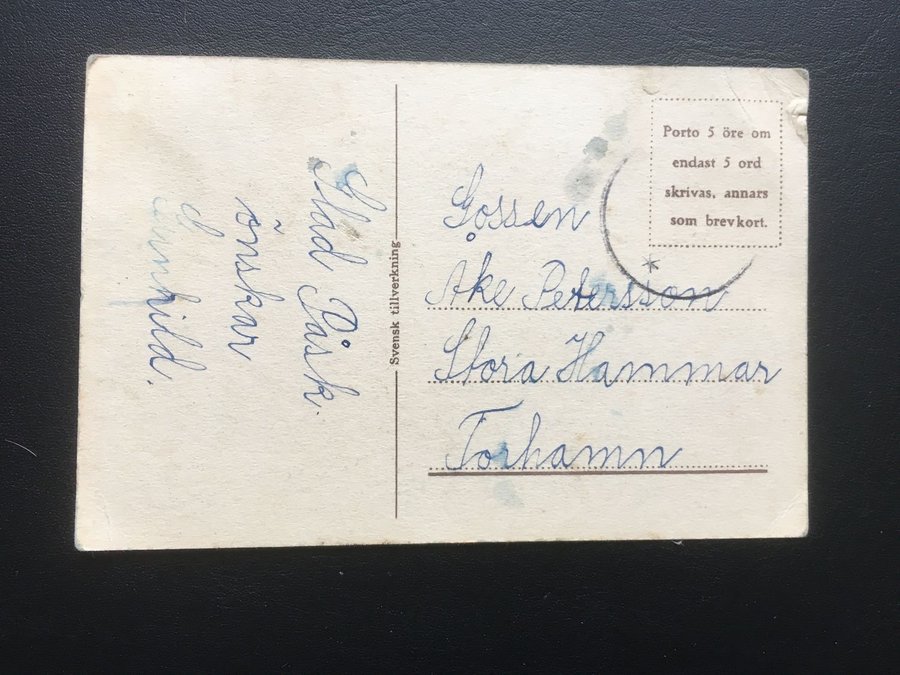 Glad Påsk.
önskar
Gunhild.
Svensk tillverkning
Porto 5 öre om
endast 5 ord
skrivas, annars
som brevkort.
Gossen
Åke Petersson
Stora Hammar
Torhamn